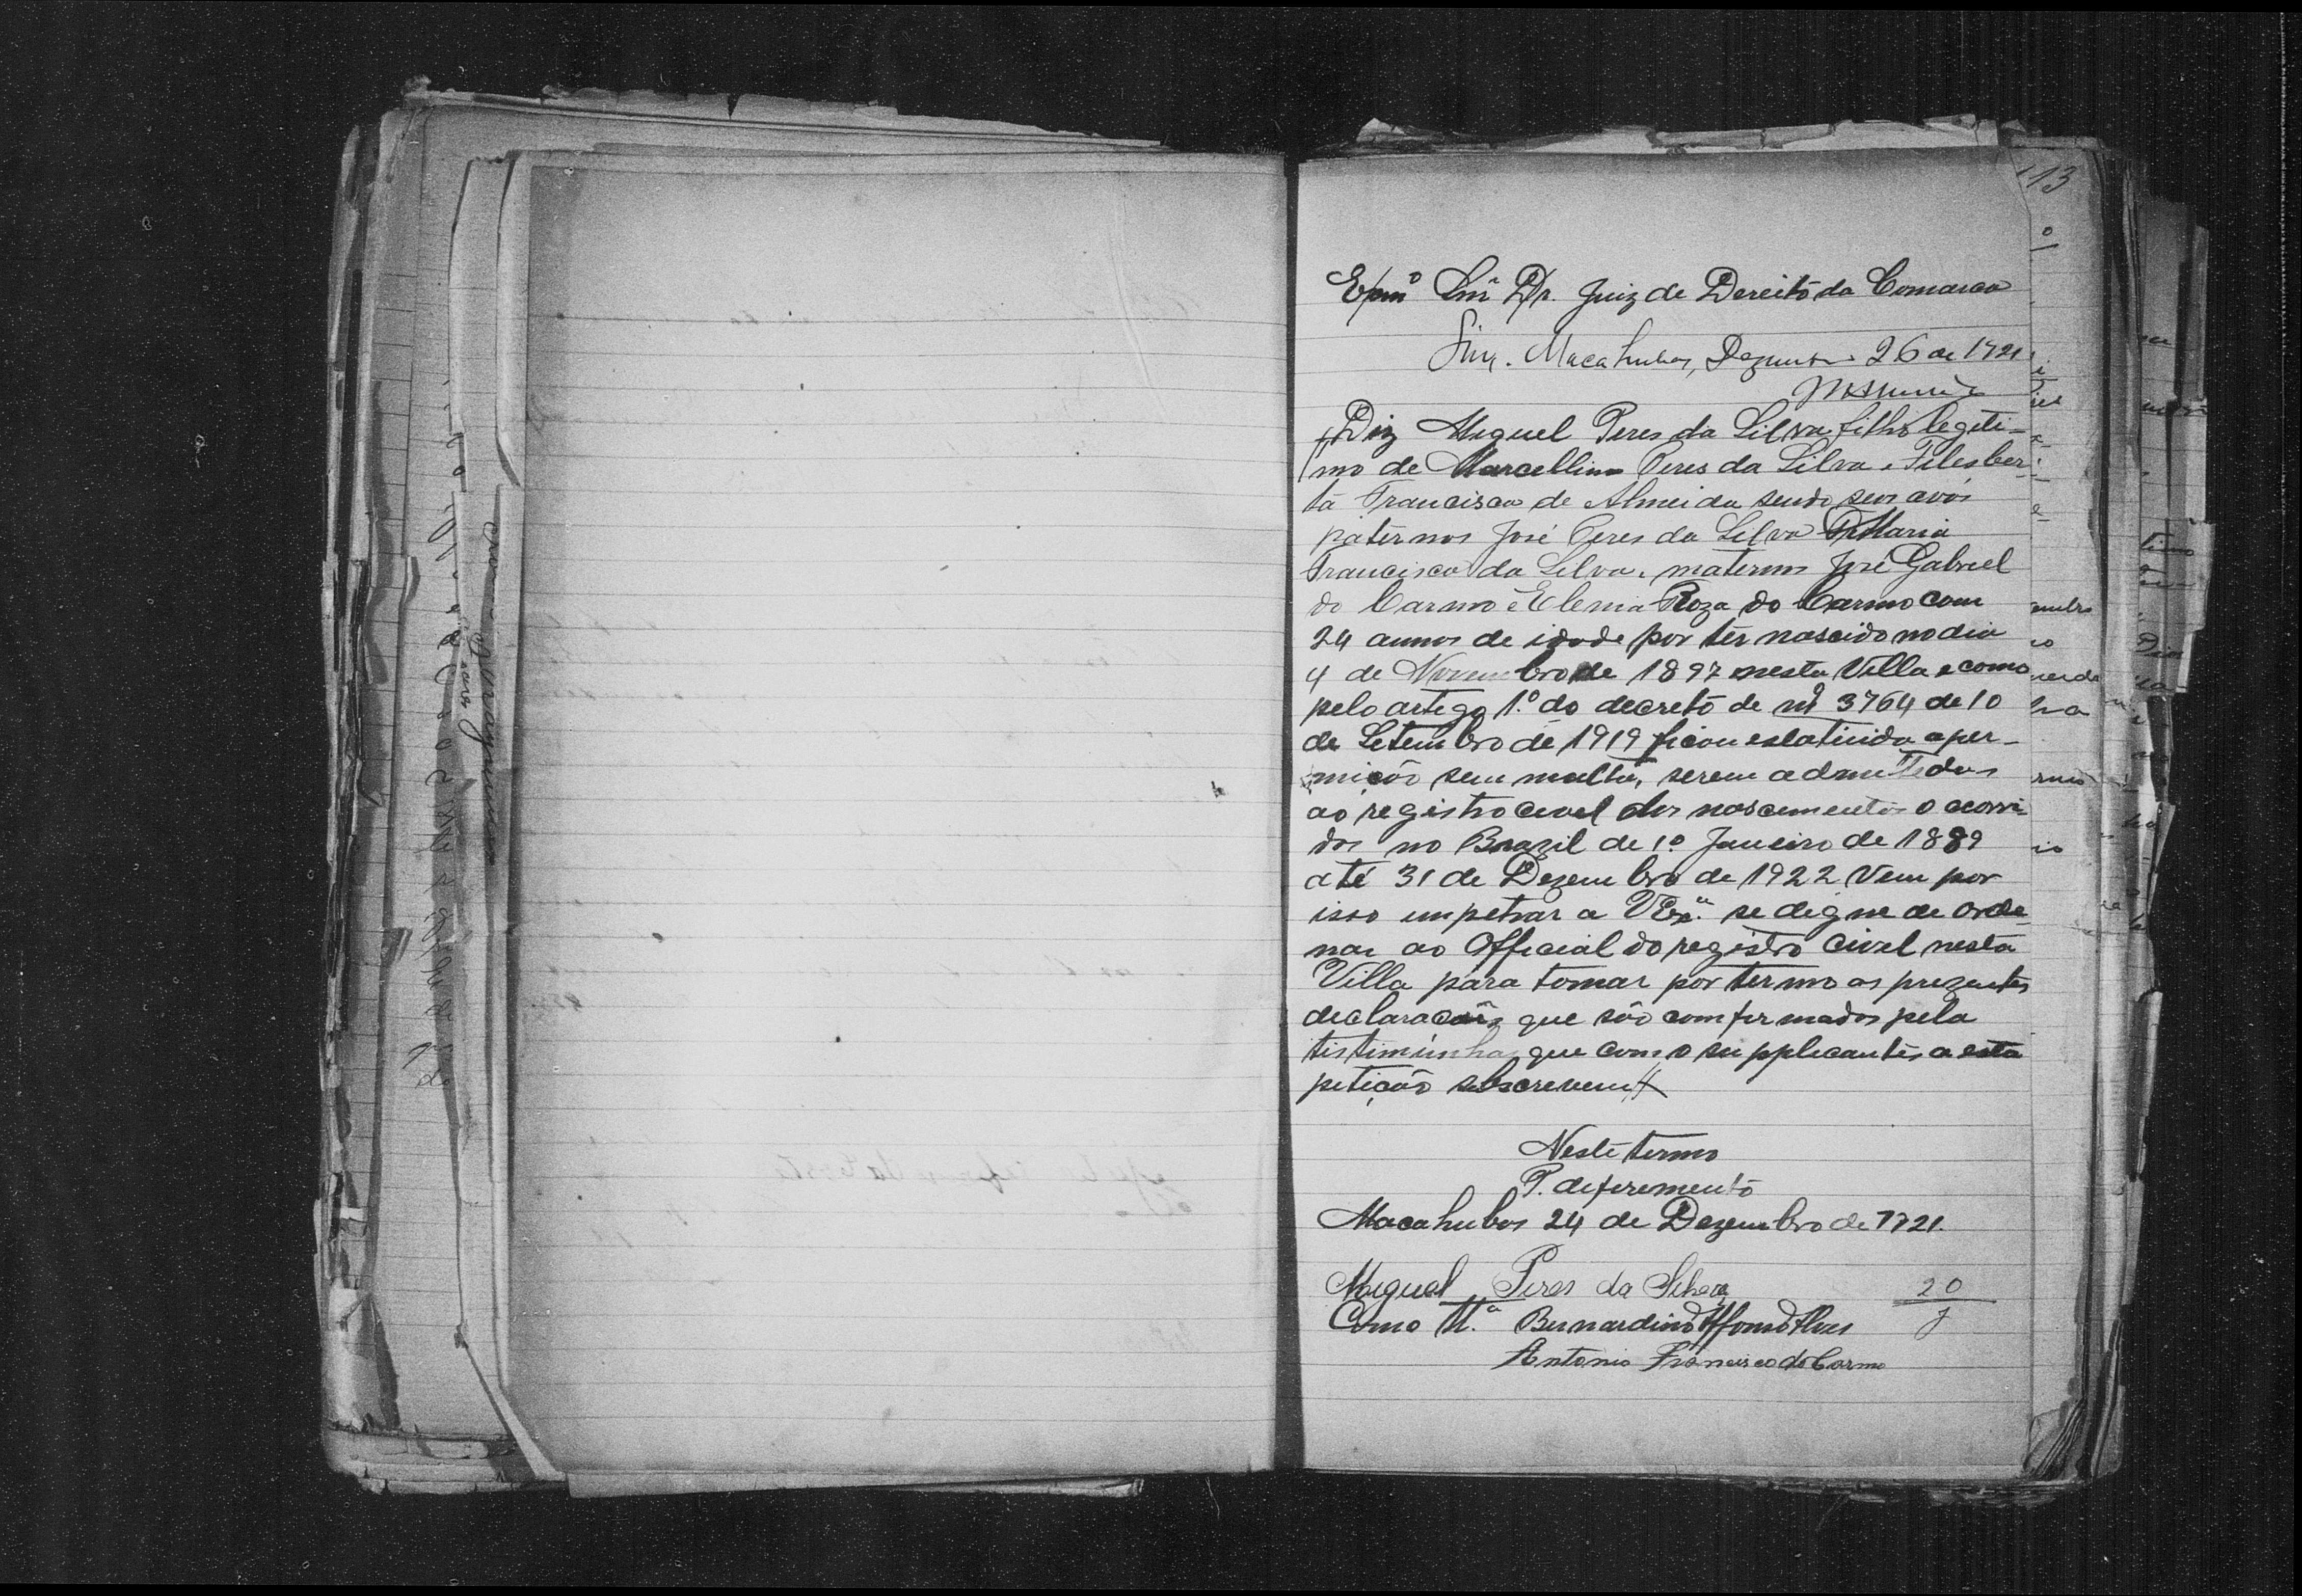 113
Exmº Snr Dr. Juiz de Dereito da Comarca
Sim. Macahubas, Dezembro 26 de 1921
Diz Miguel Peres da Silva filho legiti-
mo de Marcellino Peres da Silva e Filesber-
ta Francisca de Almeida sendo seus avós
paternos José Peres da Silva Maria
Francisca da Silva, maternos José Gabriel
do Carmo e Elenia Roza do Carmo com
24 annos de idade por ter nascido no dia
4 de Novembro de 1897 nesta Villa e como
pelo artego 1º do decreto de nº 3764 de 10
de Setembro de 1919 ficou estatuido a per-
mição sem multa, serem admittidos
ao registro cevel dos nascimentos o ccorri-
dos no Brazil de 1º Janeiro de 1889
até 31 de Dezembro de 1922 Vem por
isso impetrar a VExª se digne de orde-
nar ao Official do registro civel nesta
Villa para tomar por termo as prezentes
declaracois que são comfirmados pela
tistimunhas que com o supplicantes a esta
petição subscrevem
Neste termo
P. deferemento
Macahubas 24 de Dezembro de 1921.
Miguel Peres da Silva
20
Como tt.ª Bernardino Affonso Alves
Antonio Francisco do Carmo